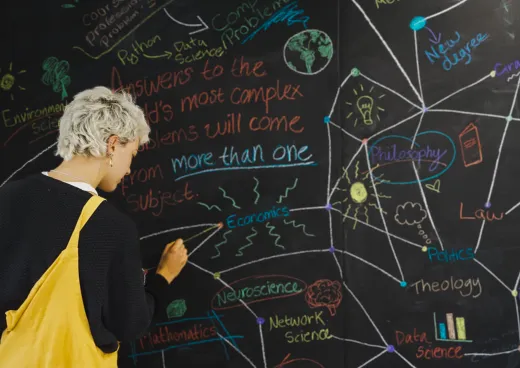 Complex
Problems
Python
Data
Science
New
degree
Answers to the
world's most complex
problems will come
from more than one
subject.
Environmental
Science
Philosophy
Economics
Law
Politics
Theology
Neuroscience
Network
Science
Mathematics
Data
Science